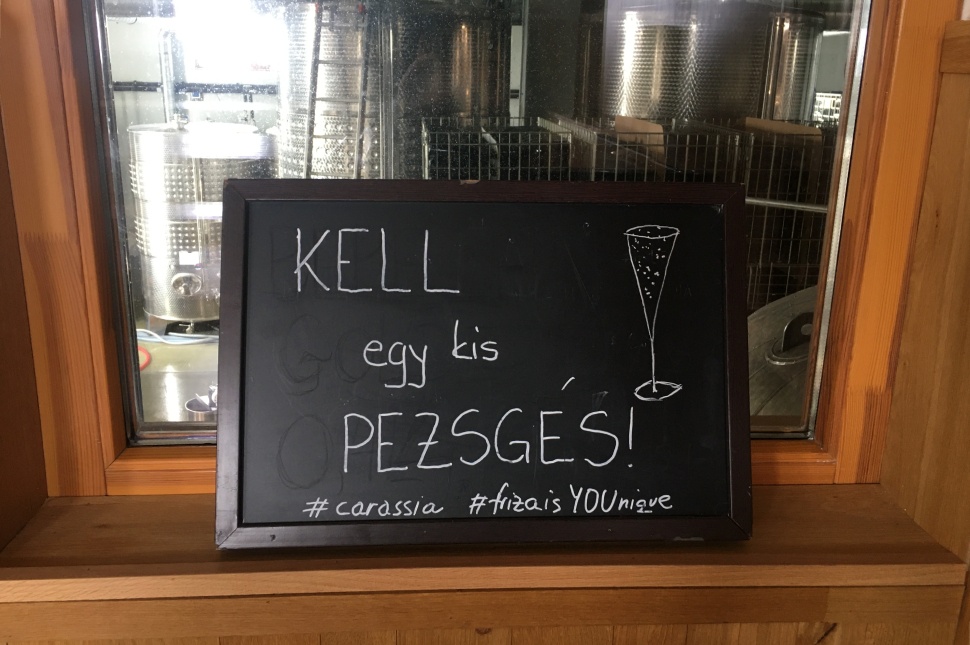 KELL
egy kis
PEZSGÉS!
#carassia #frizaisYOUnique